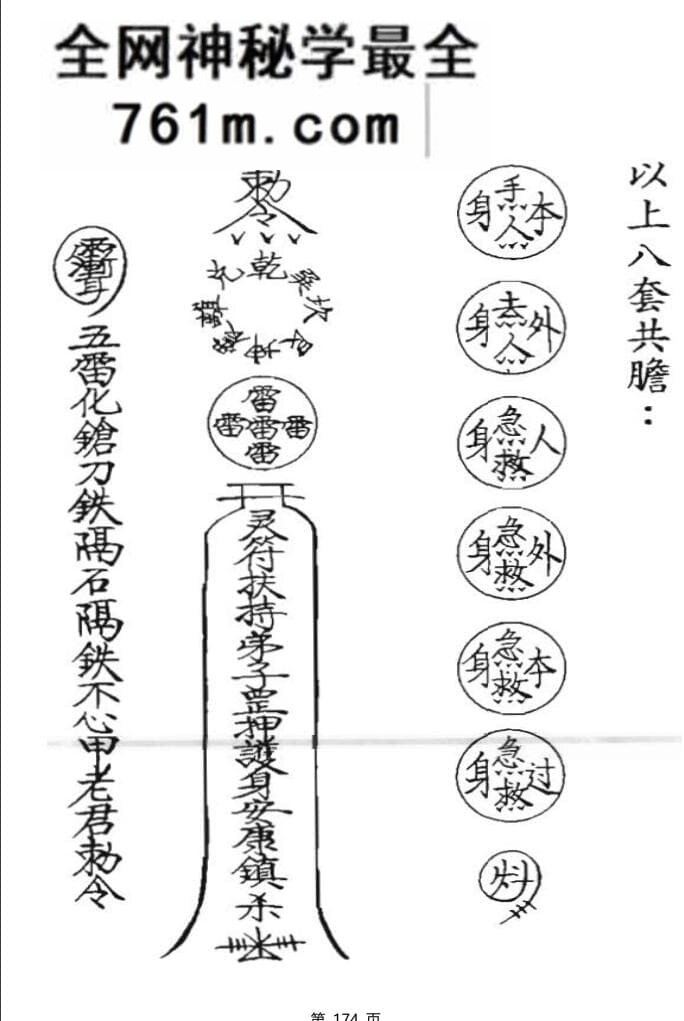 全网神秘学最全
761m.com
以上八套共膽：
手
身 本
人
去
身 外
人
急
身 人
救
急
身 外
救
急
身 本
救
急
身 过
救
勅令
乾
坎
艮
坤
兑
雷
雷雷雷
雷
灵符扶持弟子罡押護身安康鎮杀
五雷化鎗刀鉄隔石隔鉄不心甲老君勅令
第 174 页